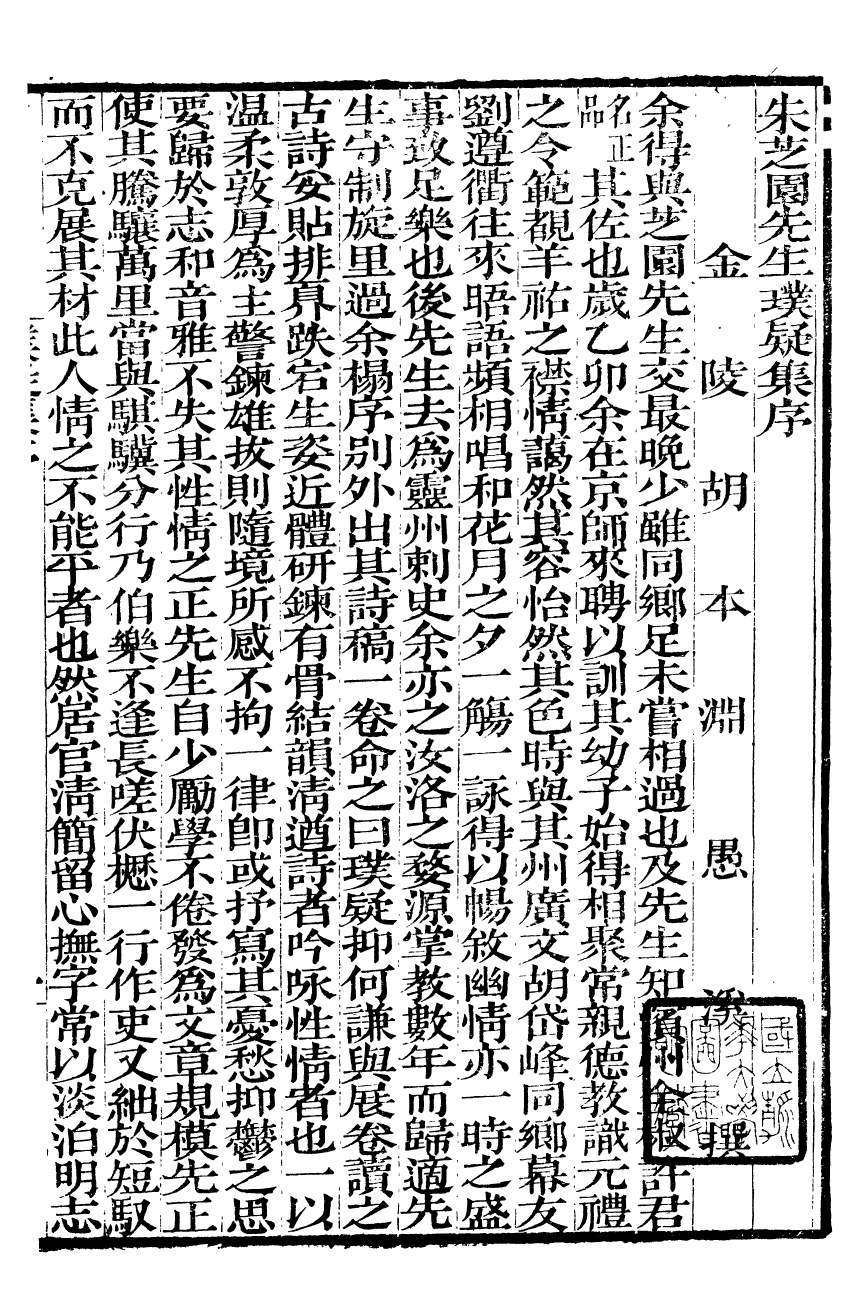 朱芝園先生璞疑集序
金陵胡本淵愚溪撰
余得與芝園先生交最晚少雖同鄉足未嘗相過也及先生知賓州金椒許君
名正品其佐也歲乙卯余在京師來聘以訓其幼子始得相聚常親德教識元禮
之令範覩羊祜之襟情藹然其容怡然其色時與其州廣文胡岱峰同鄉幕友
劉遵衢往來晤語頻相唱和花月之夕一觴一詠得以暢敘幽情亦一時之盛
事致足樂也後先生去爲靈州刺史余亦之汝洛之婺源掌教數年而歸適先
生守制旋里過余榻序別外出其詩稿一卷命之曰璞疑抑何謙與展卷讀之
古詩妥貼排奡跌宕生姿近體研鍊有骨結韻清遒詩者吟咏性情者也一以
温柔敦厚爲主警鍊雄拔則隨境所感不拘一律卽或抒寫其憂愁抑鬱之思
要歸於志和音雅不失其性情之正先生自少勵學不倦發爲文章規模先正
使其騰驤萬里當與騏驥分行乃伯樂不逢長嗟伏櫪一行作吏又絀於短馭
而不克展其材此人情之不能平者也然居官清簡留心撫字常以淡泊明志